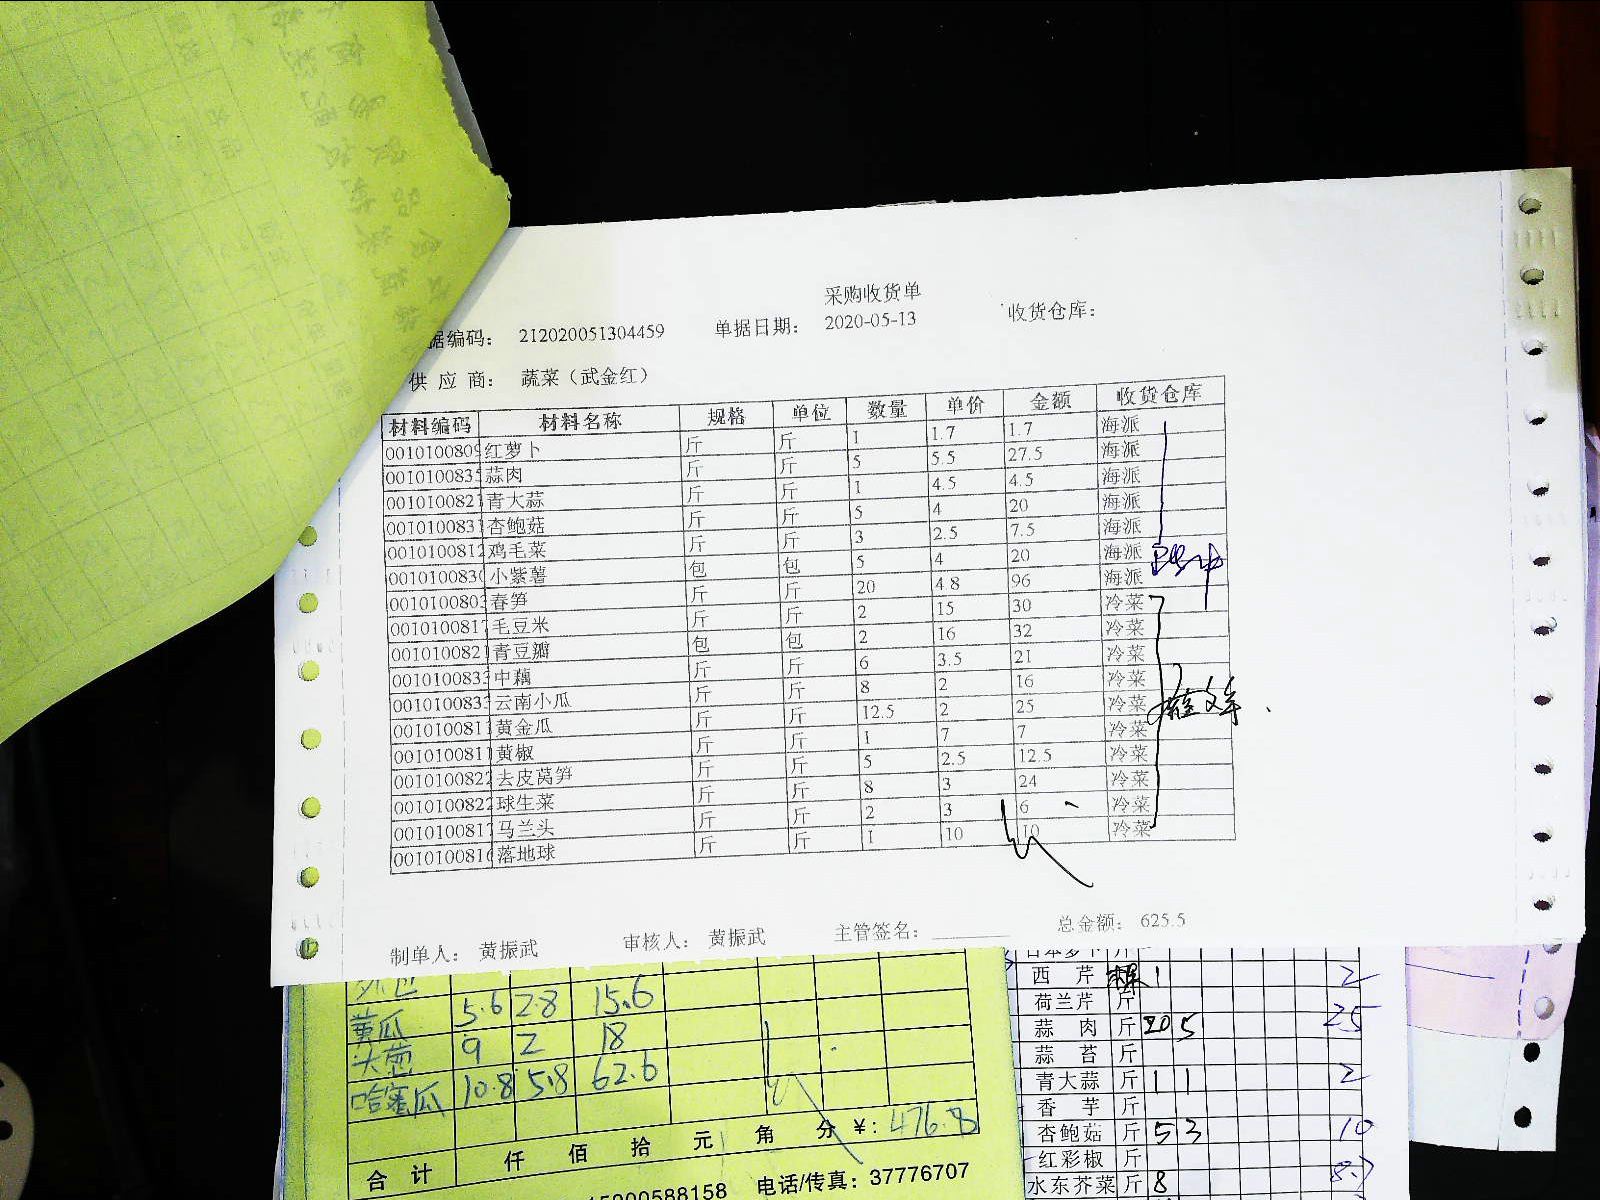 采购收货单
据编码： 212020051304459 单据日期： 2020-05-13 收货仓库：
供 应 商： 蔬菜（武金红）
材料编码 材料名称 规格 单位 数量 单价 金额 收货仓库
001010080 红萝卜 斤 斤 1 1.7 1.7 海派
001010083 蒜肉 斤 斤 5 5.5 27.5 海派
001010082 青大蒜 斤 斤 1 4.5 4.5 海派
001010083 杏鲍菇 斤 斤 5 4 20 海派
001010081 鸡毛菜 斤 斤 3 2.5 7.5 海派
001010083 小紫薯 包 包 5 4 20 海派
001010080 春笋 斤 斤 20 4.8 96 海派
001010081 毛豆米 斤 斤 2 15 30 冷菜
001010082 青豆瓣 包 包 2 16 32 冷菜
001010083 中藕 斤 斤 6 3.5 21 冷菜
001010083 云南小瓜 斤 斤 8 2 16 冷菜
001010081 黄金瓜 斤 斤 12.5 2 25 冷菜
001010081 黄椒 斤 斤 1 7 7 冷菜
001010082 去皮莴笋 斤 斤 5 2.5 12.5 冷菜
001010082 球生菜 斤 斤 8 3 24 冷菜
001010081 马兰头 斤 斤 2 3 6 冷菜
001010081 落地球 斤 斤 1 10 10 冷菜
制单人： 黄振武 审核人： 黄振武 主管签名： 总金额： 625.5
5.6 2.8 15.6
黄瓜 9 2 18
大葱 10.8 5.8 62.6
哈蜜瓜
合 计 仟 佰 拾 元 角 分 ¥: 476.8
15900588158 电话/传真：37776707
日本萝卜 斤
西 芹 1 2
荷兰芹 斤
蒜 肉 斤 20 5 25
蒜 苔 斤
青大蒜 斤 1 1 2
香 芋 斤
杏鲍菇 斤 5 3 10
红彩椒 斤
水东芥菜 斤 8 8.7